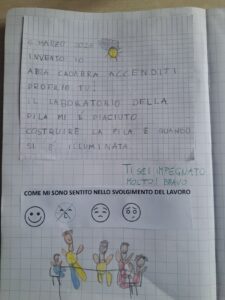 6 MARZO 2020
INVENTO IO
ABRA CADABRA ACCENDITI
PROPRIO TU!
IL LABORATORIO DELLA
PILA MI È PIACIUTO
COSTRUIRE LA PILA E QUANDO
SI È ILLUMINATA.
TI SEI IMPEGNATO
MOLTO! BRAVO
COME MI SONO SENTITO NELLO SVOLGIMENTO DEL LAVORO